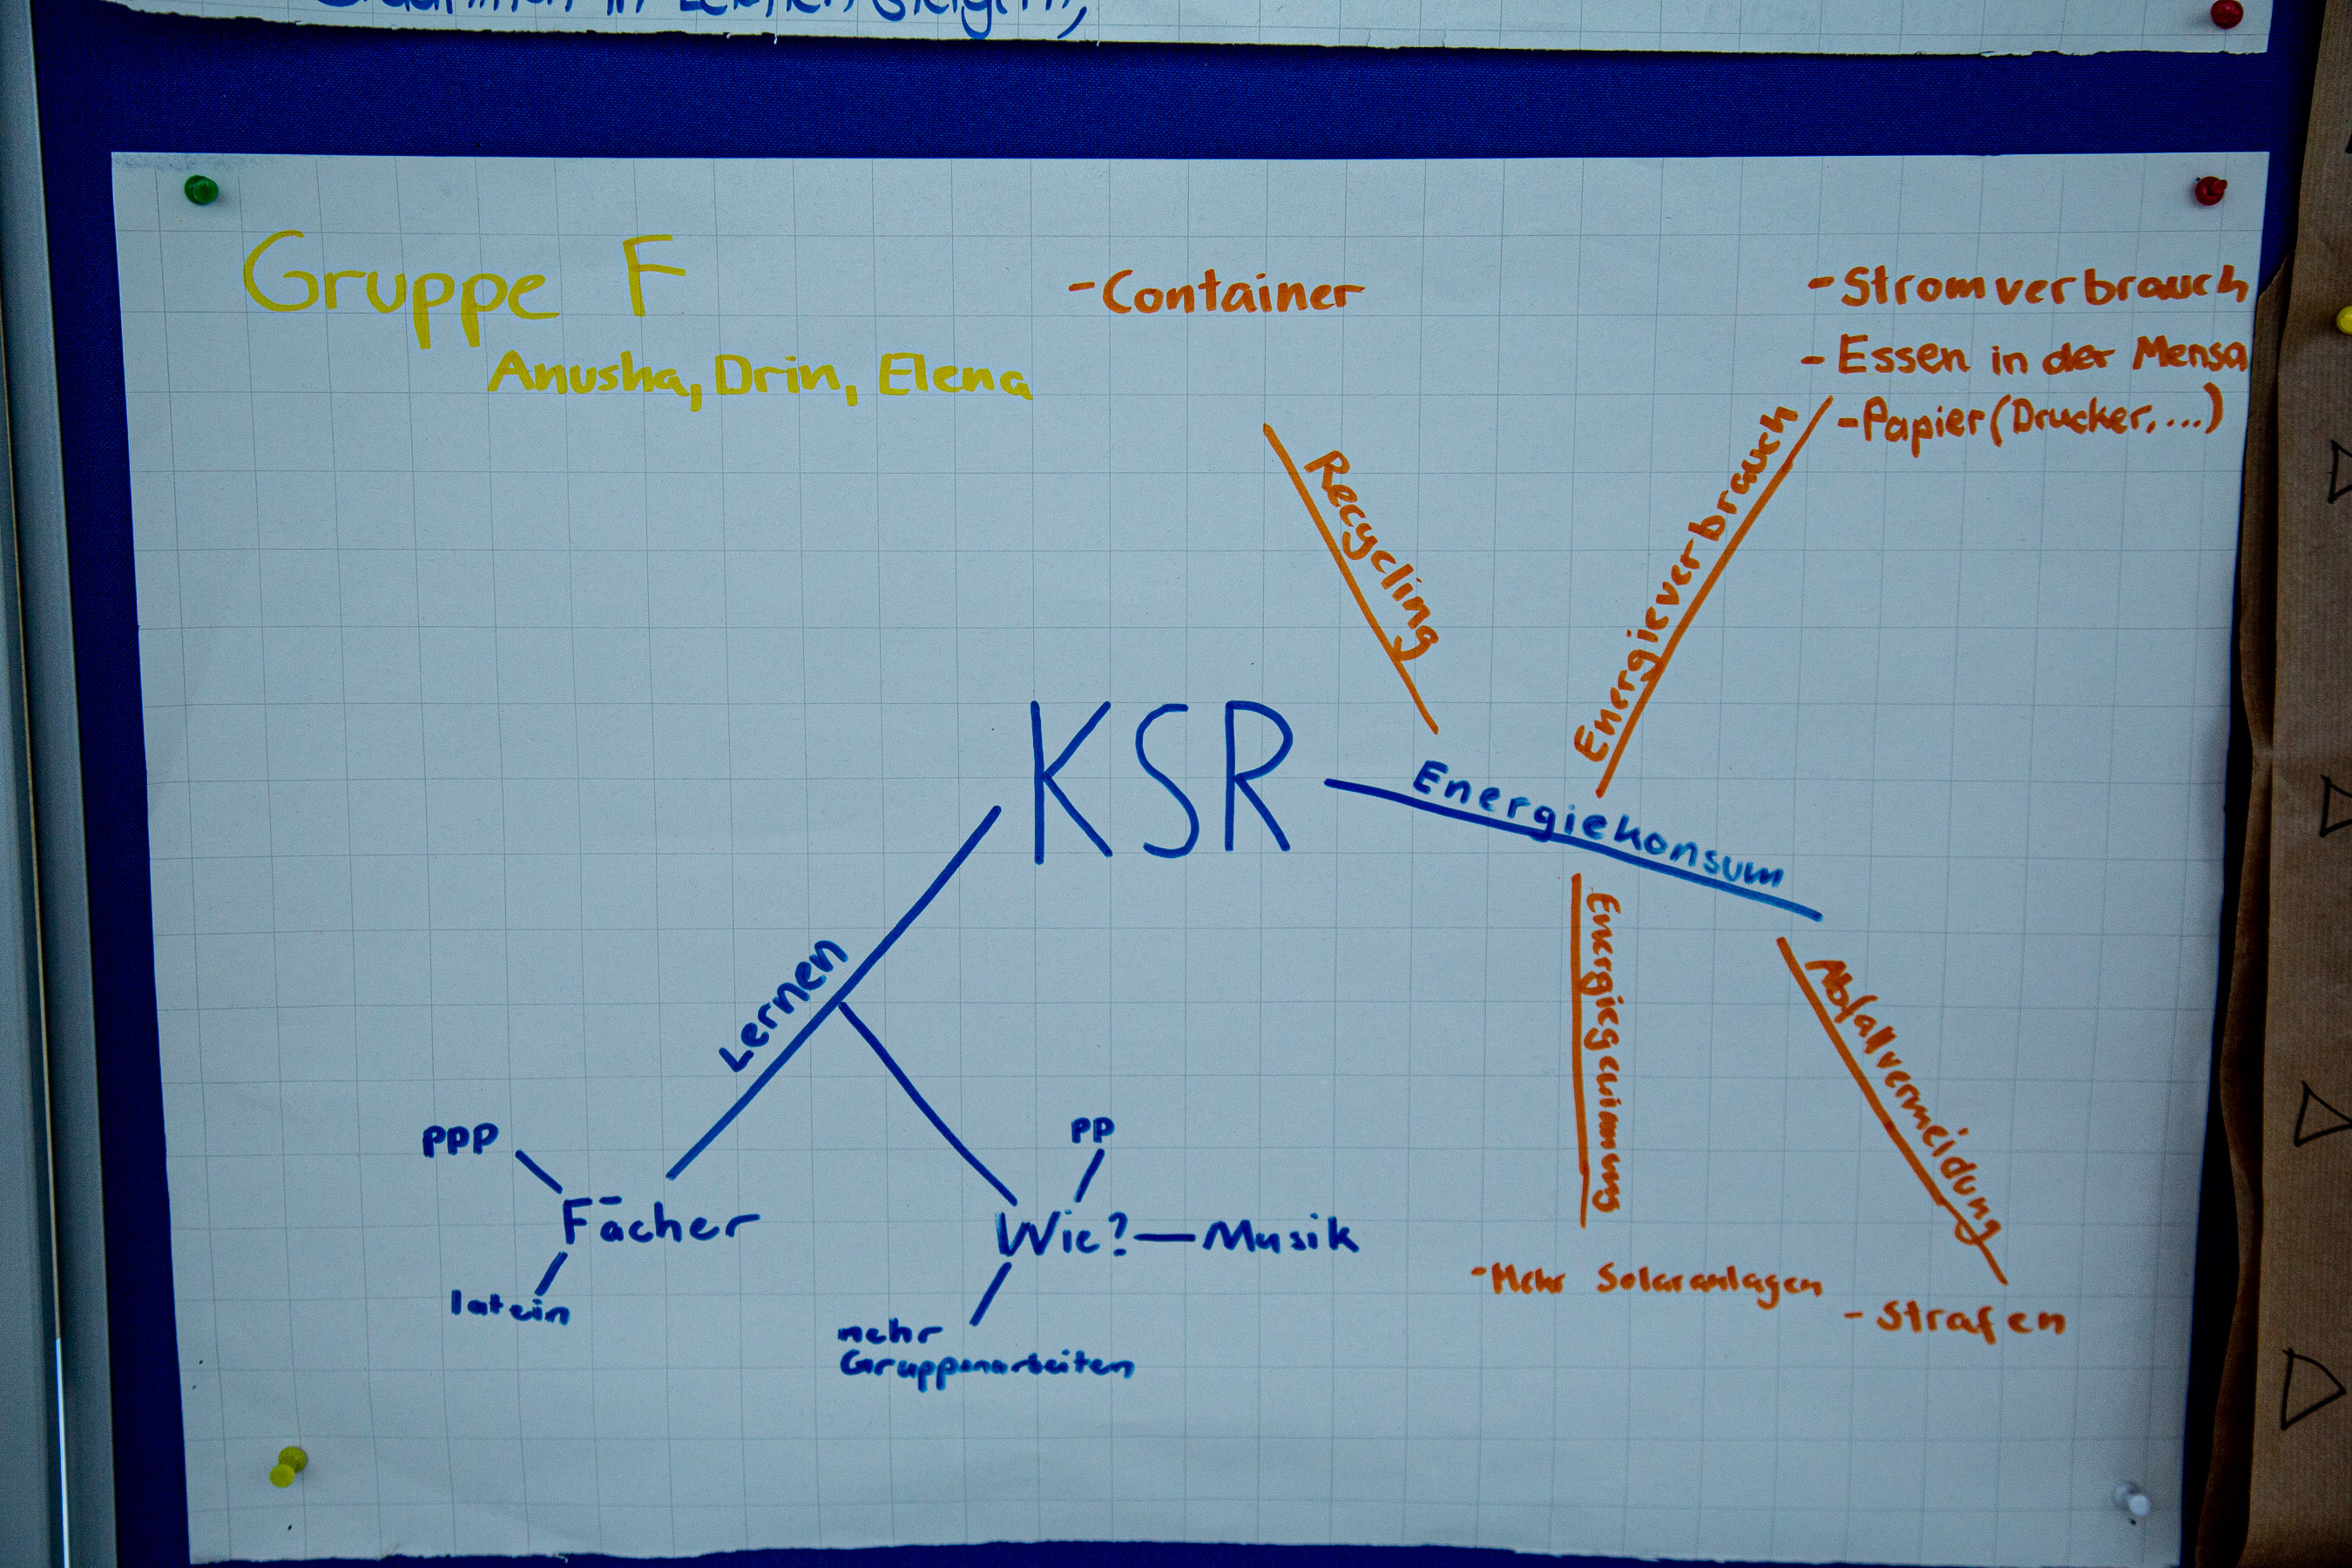 in Lernen steigern,
Gruppe F
Anusha, Drin, Elena
- Container
- Stromverbrauch
- Essen in der Mensa
- Papier (Drucker, ...)
Recycling
Energieverbrauch
KSR
Energiekonsum
Lernen
Energiegewinnung
Abfallvermeidung
PPP
Fächer
latein
PP
Wie? — Musik
mehr
Gruppenarbeiten
- Mehr Solaranlagen
- Strafen